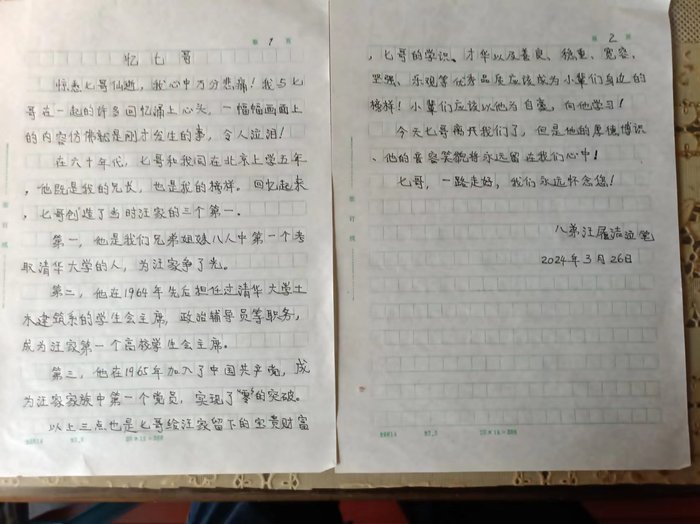 第 1 页
忆七哥
惊悉七哥仙逝，我心中万分悲痛！我与七
哥在一起的许多回忆涌上心头，一幅幅画面上
的内容仿佛就是刚才发生的事，令人泣泪！
在六十年代，七哥和我同在北京上学五年
，他既是我的兄长，也是我的榜样。回忆起来
，七哥创造了当时汪家的三个第一。
第一，他是我们兄弟姐妹八人中第一个考
取清华大学的人，为汪家争了先。
第二，他在1964年先后担任过清华大学土
木建筑系的学生会主席，政治辅导员等职务，
成为汪家第一个高校学生会主席。
第三，他在1965年加入了中国共产党，成
为汪家家族中第一个党员，实现了“零”的突破。
以上三点也是七哥给汪家留下的宝贵财富
装订线
第 2 页
，七哥的学识、才华以及善良、稳重、宽容、
坚强、乐观等优秀品质应该成为小辈们身边的
榜样！小辈们应该以他为自豪，向他学习！
今天七哥离开我们了，但是他的厚德博识
、他的音容笑貌将永远留在我们心中！
七哥，一路走好，我们永远怀念您！
八弟汪履洁泣笔
2024年3月26日
装订线